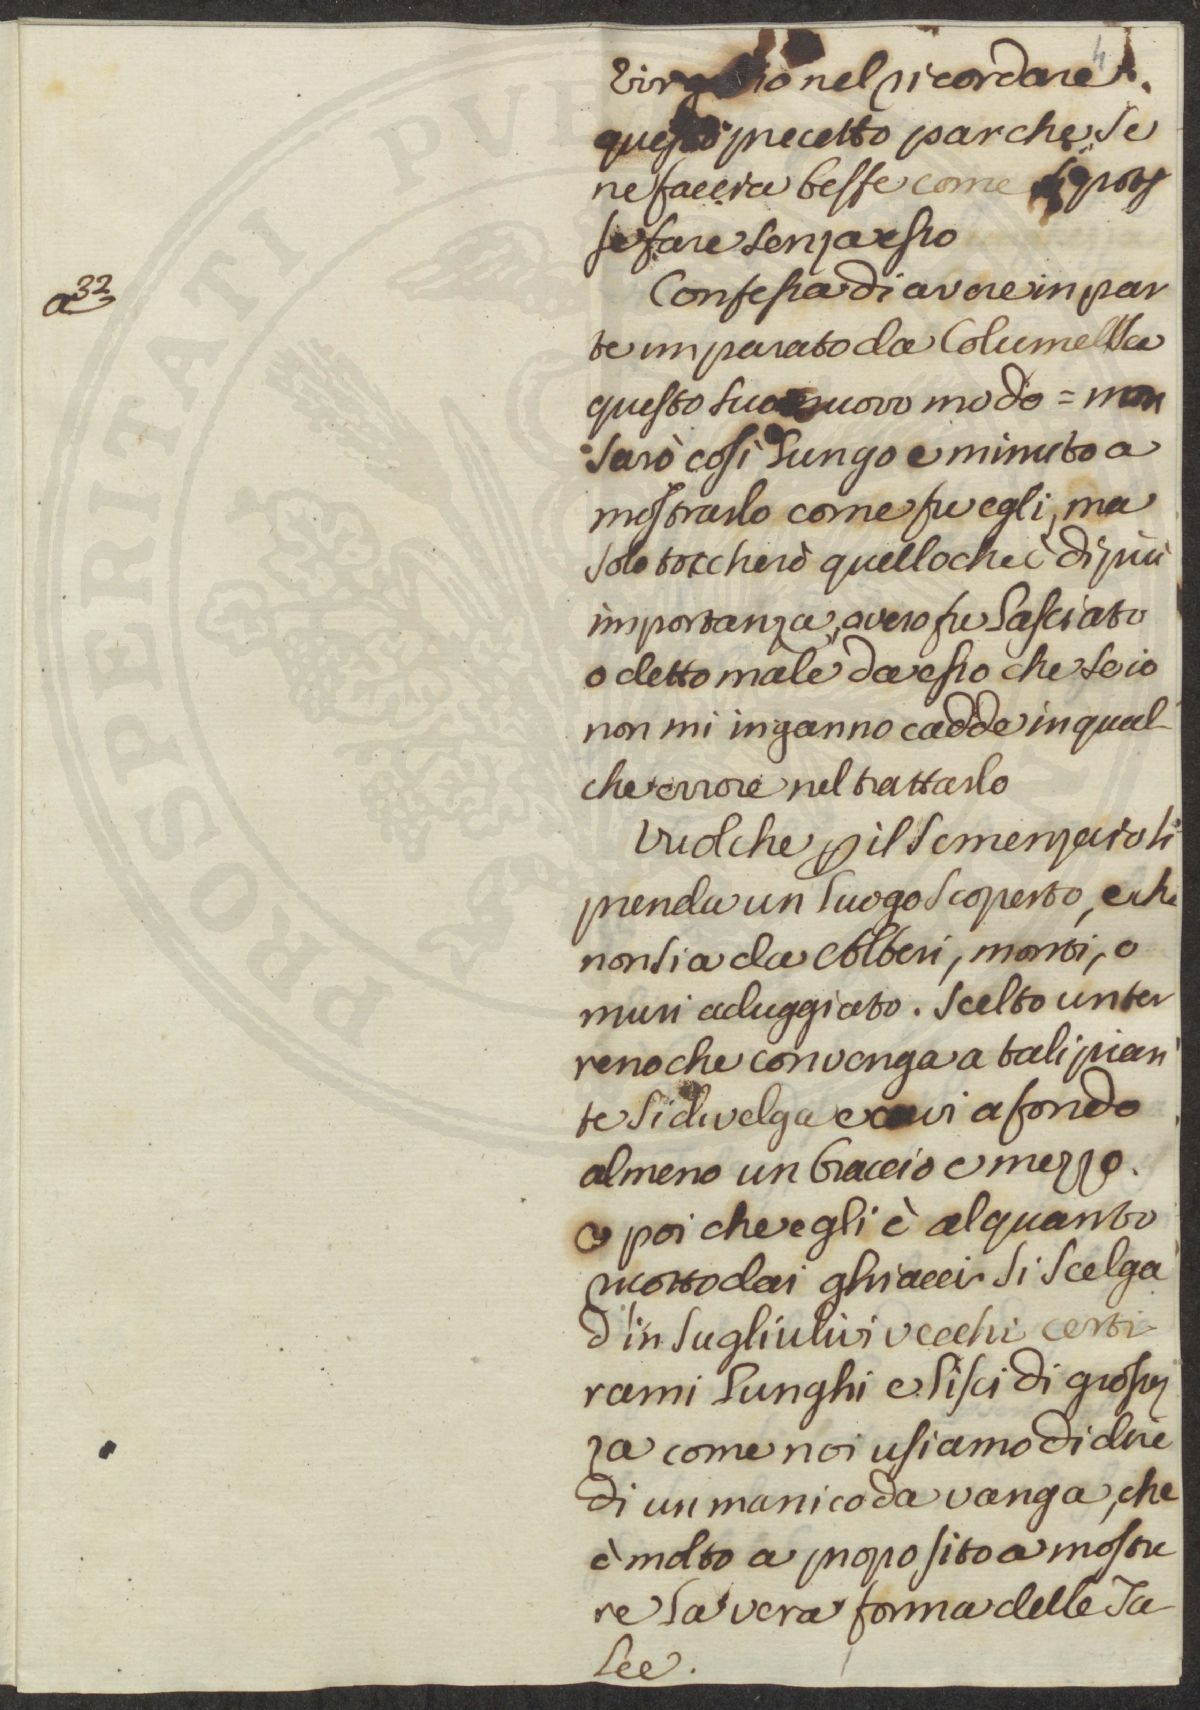 4
Virgilio nel ricordare
questo precetto par che se
ne faccia beffe come si potes
se fare senza esso
a 32
Confessa di avere in par
te imparato da Columella
questo suo nuovo modo = non
sarò così lungo e minuto a
mostrarlo come fu egli, ma
solo toccherò quello che è di più
importanza, overo fu lasciato
o detto male da esso che se io
non mi inganno cadde in qual
che errore nel trattarlo
Vuol che p il Semenzaio si
prenda un luogo scoperto, e che
non sia da Alberi, monti, o
muri aduggiato. Scelto un ter
reno che convenga a tali pian
te si divelga e cavi a fondo
almeno un braccio e mezzo.
e poi che egli è alquanto
cotto dai ghiacci si scelga
d'in sugli ulivi vecchi certi
rami lunghi e lisci di grossez
za come noi usiamo di dire
di un manico da vanga, che
è molto a proposito a mostra
re la vera forma delle Ta
lee.
PROSPERITATI